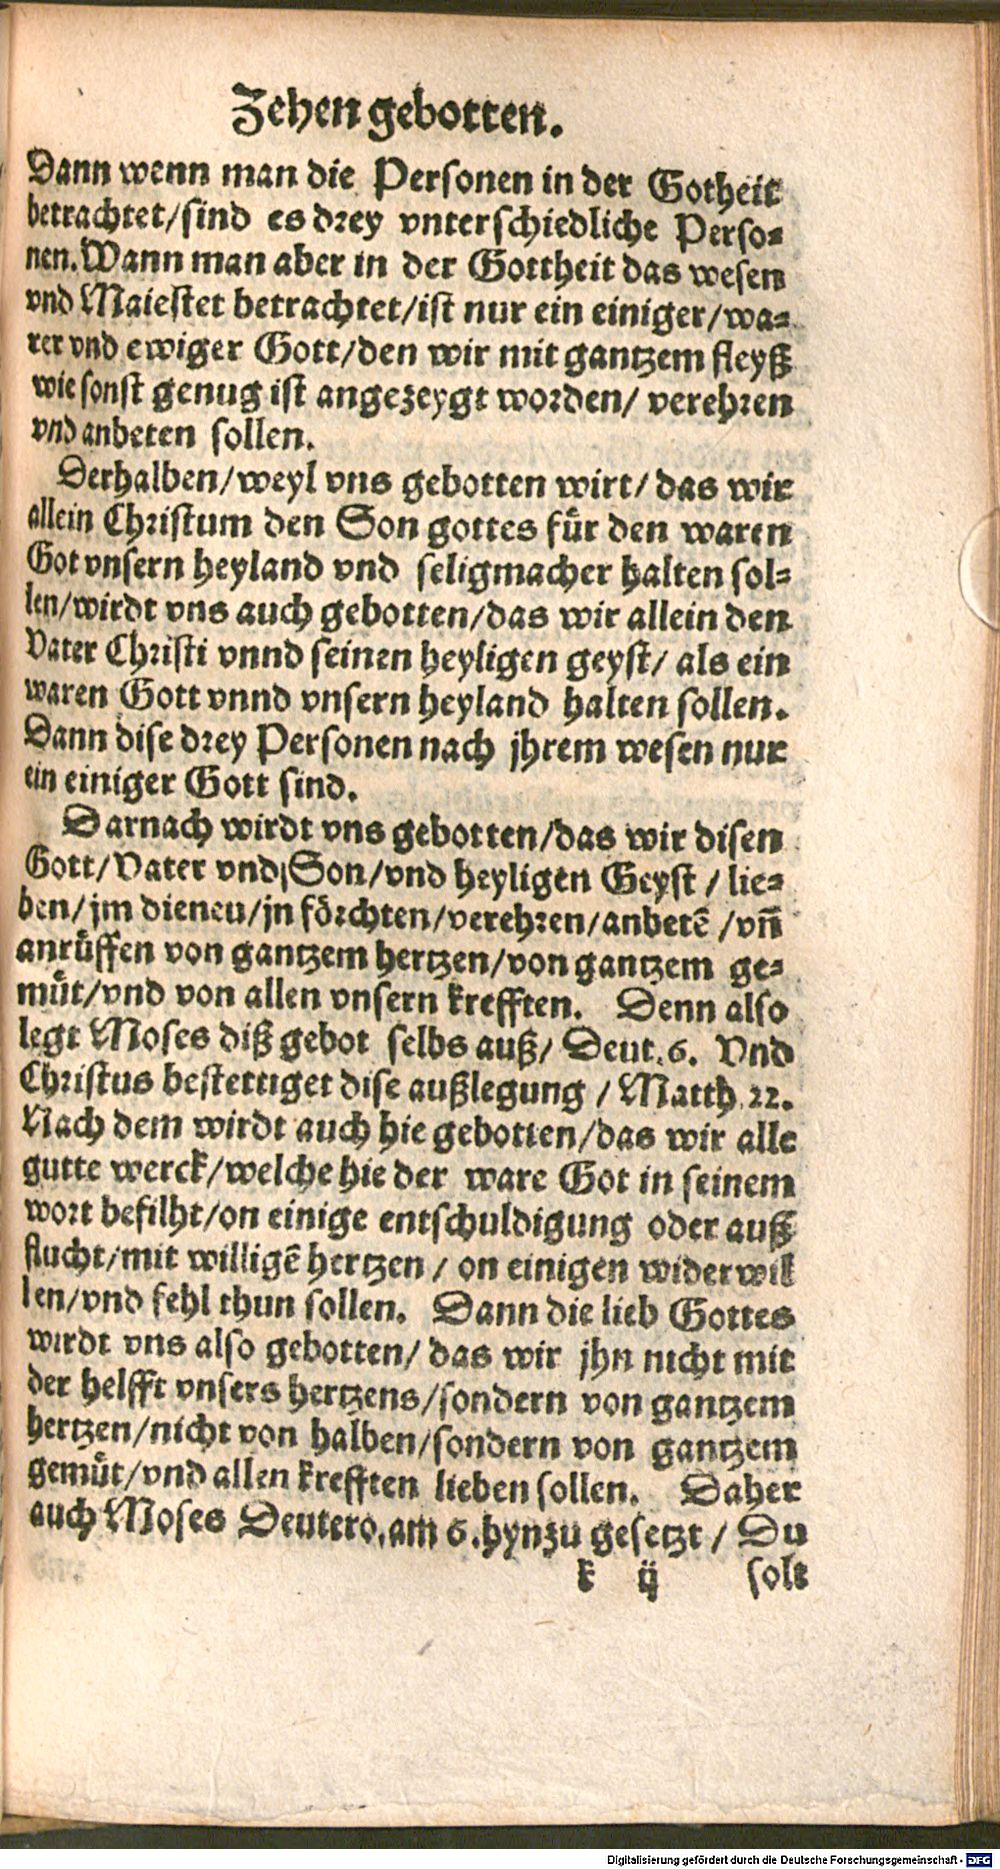 Zehen gebotten.
Dann wenn man die Personen in der Gotheit
betrachtet/sind es drey vnterschiedliche Perso⸗
nen. Wann man aber in der Gottheit das wesen
vnd Maiestet betrachtet/ist nur ein einiger/wa⸗
rer vnd ewiger Gott/den wir mit gantzem fleyß
wie sonst genug ist angezeygt worden/ verehren
vnd anbeten sollen.
Derhalben/weyl vns gebotten wirt/ das wir
allein Christum den Son gottes für den waren
Got vnsern heyland vnd seligmacher halten sol⸗
len/wirdt vns auch gebotten/das wir allein den
Vater Christi vnnd seinen heyligen geyst/ als ein
waren Gott vnnd vnsern heyland halten sollen.
Dann dise drey Personen nach jhrem wesen nur
ein einiger Gott sind.
Darnach wirdt vns gebotten/das wir disen
Gott/Vater vnd Son/vnd heyligen Geyst / lie⸗
ben/jm dienen/jn förchten/verehren/anbetē /vñ
anrüffen von gantzem hertzen/von gantzem ge⸗
müt/vnd von allen vnsern krefften. Denn also
legt Moses diß gebot selbs auß/ Deut. 6. Vnd
Christus bestettiget dise außlegung / Matth 22.
Nach dem wirdt auch hie gebotten/das wir alle
gutte werck/welche hie der ware Got in seinem
wort befilht/on einige entschuldigung oder auß
flucht/mit willigē hertzen / on einigen widerwil
len/vnd fehl thun sollen. Dann die lieb Gottes
wirdt vns also gebotten/ das wir jhn nicht mit
der helfft vnsers hertzens/sondern von gantzem
hertzen/nicht von halben/sondern von gantzem
gemüt/vnd allen krefften lieben sollen. Daher
auch Moses Deutero. am 6. hynzu gesetzt / Du
k ij solt
Digitalisierung gefördert durch die Deutsche Forschungsgemeinschaft - DFG